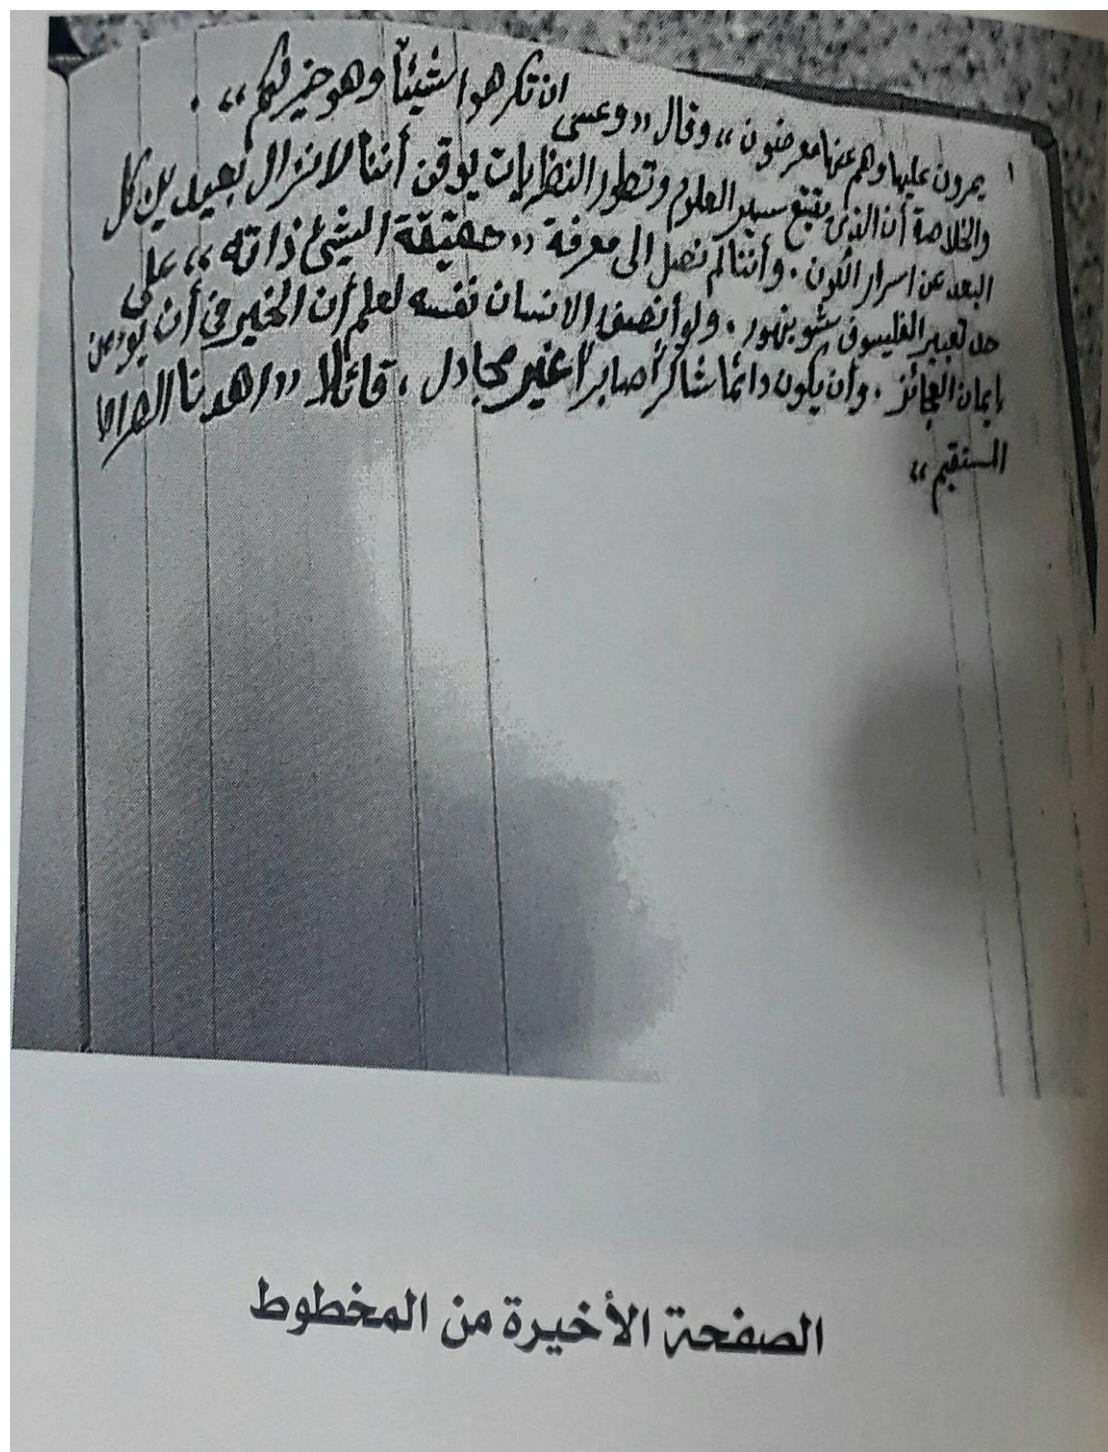 يمرون عليها وهم عنها معرضون» وقال «وعسى ان تكرهوا شيئاً وهو خير لكم».
والخلاصة أن الذي يتتبع سير العلوم وتطور النظريات يوقن أننا لا نزال بعيدين كل
البعد عن اسرار الكون. وأننا لم نصل الى معرفة «حقيقة الشيئ ذاته» على
حد تعبير الفليسوف شوبنهور. ولو أنصف الانسان نفسه لعلم أن الخير في أن يؤمن
بإيمان العجائز. وأن يكون دائما شاكراً صابراً غير مجادل، قائلا «اهدنا الصراط
المستقيم»
الصفحة الأخيرة من المخطوط